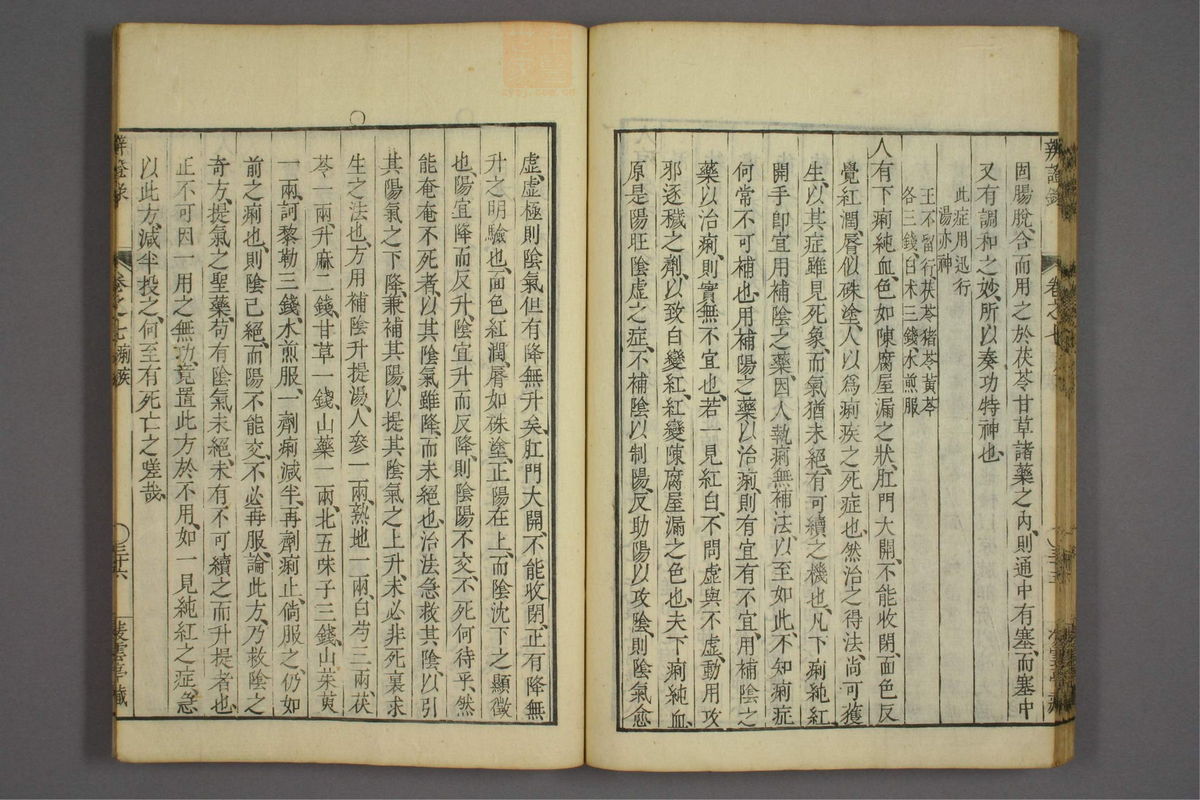 固腸脫、合而用之於茯苓甘草諸藥之內、則通中有塞、而塞中
又有調和之妙、所以奏功特神也、
此症用迅行
湯亦神
王不留行茯苓猪苓黃芩
各三錢、白术三錢、水煎服
人有下痢純血、色如陳腐屋漏之狀、肛門大開、不能收閉、面色反
覺紅潤、唇似硃塗、人以爲痢疾之死症也、然治之得法、尚可獲
生、以其症雖見死象、而氣猶未絕、有可續之機也、凡下痢純紅、
開手卽宜用補陰之藥、因人執痢無補法、以至如此、不知痢症
何常不可補也、用補陽之藥以治痢、則有宜有不宜、用補陰之
藥以治痢、則實無不宜也、若一見紅白、不問虛與不虛、動用攻
邪逐穢之劑、以致白變紅、紅變陳腐屋漏之色也、夫下痢純血、
原是陽旺陰虛之症、不補陰以制陽、反助陽以攻陰、則陰氣愈
辨證錄
卷之七
三十五
虛、虛極則陰氣但有降無升矣、肛門大開、不能收閉、正有降無
升之明驗也、面色紅潤、脣如硃塗、正陽在上、而陰沈下之顯徵
也、陽宜降而反升、陰宜升而反降、則陰陽不交、不死何待乎、然
能奄奄不死者、以其陰氣雖降、而未絕也、治法急救其陰、以引
其陽氣之下降、兼補其陽、以提其陰氣之上升、未必非死裏求
生之法也、方用補陰升提湯、人參一兩、熟地一兩、白芍三兩、茯
苓一兩、升麻二錢、甘草一錢、山藥一兩、北五味子三錢、山茱萸
一兩、訶黎勒三錢、水煎服、一劑痢減半、再劑痢止、倘服之、仍如
前之痢也、則陰已絕、而陽不能交、不必再服、論此方、乃救陰之
奇方、提氣之聖藥、苟有陰氣未絕、未有不可續之而升提者也、
正不可因一用之無功、竟置此方於不用、如一見純紅之症、急
以此方、減半投之、何至有死亡之嗟哉、
辨證錄
卷之七痢疾
三十六